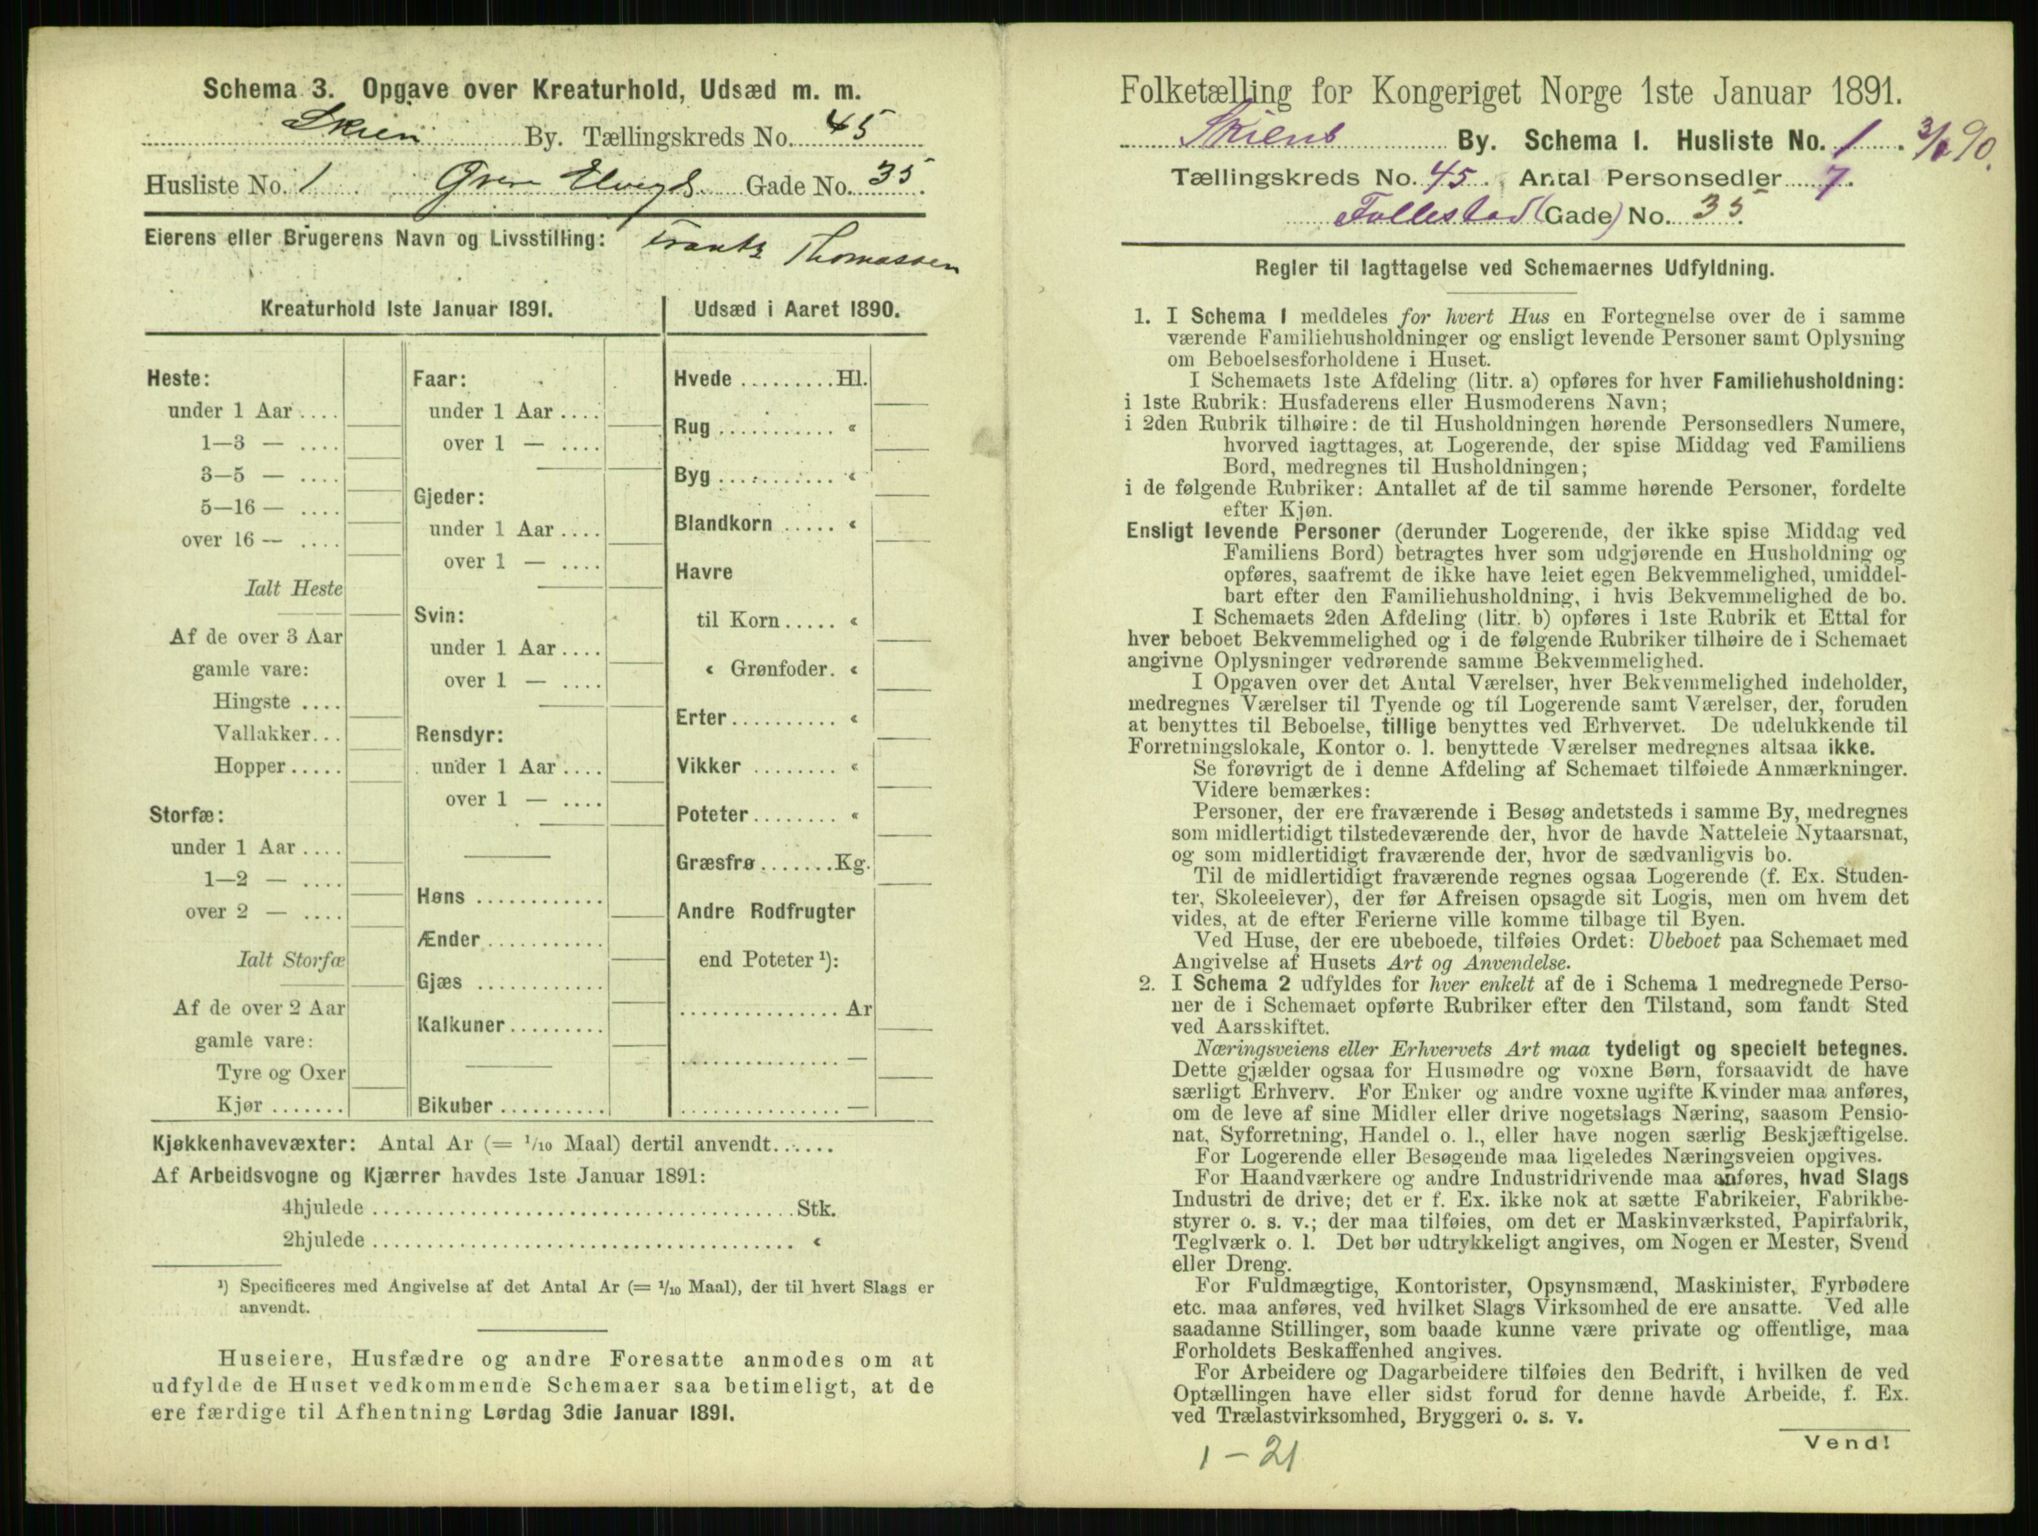 Schema 3. Opgave over Kreaturhold, Udsæd m. m.
Skien By. Tællingskreds No. 45
Husliste No. 1 Gade No. 35.
Eierens eller Brugerens Navn og Livsstilling: Frantz Thomassen
Kreaturhold 1ste Januar 1891.
Heste:
under 1 Aar ....
1—3 — ....
3—5 — ....
5—16 — ....
over 16 — ....
Ialt Heste
Af de over 3 Aar
gamle vare:
Hingste ....
Vallakker...
Hopper.....
Storfæ:
under 1 Aar ....
1—2 — ....
over 2 — ....
Ialt Storfæ
Af de over 2 Aar
gamle vare:
Tyre og Oxer
Kjør .......
Faar:
under 1 Aar ....
over 1 — ....
Gjeder:
under 1 Aar ....
over 1 — ....
Svin:
under 1 Aar ....
over 1 — ....
Rensdyr:
under 1 Aar ....
over 1 — ....
Høns ............
Ænder ...........
Gjæs ............
Kalkuner.........
Bikuber ..........
Udsæd i Aaret 1890.
Hvede .........Hl.
Rug ........... «
Byg ........... «
Blandkorn ..... «
Havre
til Korn..... «
« Grønfoder. «
Erter.......... «
Vikker ........ «
Poteter........ «
Græsfrø.......Kg.
Andre Rodfrugter
end Poteter ¹):
............... Ar
............... —
............... —
Kjøkkenhavevæxter: Antal Ar (= 1/10 Maal) dertil anvendt......
Af Arbeidsvogne og Kjærrer havdes 1ste Januar 1891:
4hjulede ......................................Stk.
2hjulede ...................................... «
¹) Specificeres med Angivelse af det Antal Ar (= 1/10 Maal), der til hvert Slags er
anvendt.
Huseiere, Husfædre og andre Foresatte anmodes om at
udfylde de Huset vedkommende Schemaer saa betimeligt, at de
ere færdige til Afhentning Lørdag 3die Januar 1891.
Folketælling for Kongeriget Norge 1ste Januar 1891.
Skiens By. Schema I. Husliste No. 1.
Tællingskreds No. 45. Antal Personsedler 7.
Follestad (Gade) No. 35.
Regler til Iagttagelse ved Schemaernes Udfyldning.
1. I Schema 1 meddeles for hvert Hus en Fortegnelse over de i samme
værende Familiehusholdninger og ensligt levende Personer samt Oplysning
om Beboelsesforholdene i Huset.
I Schemaets 1ste Afdeling (litr. a) opføres for hver Familiehusholdning:
i 1ste Rubrik: Husfaderens eller Husmoderens Navn;
i 2den Rubrik tilhøire: de til Husholdningen hørende Personsedlers Numere,
hvorved iagttages, at Logerende, der spise Middag ved Familiens
Bord, medregnes til Husholdningen;
i de følgende Rubriker: Antallet af de til samme hørende Personer, fordelte
efter Kjøn.
Ensligt levende Personer (derunder Logerende, der ikke spise Middag ved
Familiens Bord) betragtes hver som udgjørende en Husholdning og
opføres, saafremt de ikke have leiet egen Bekvemmelighed, umiddel-
bart efter den Familiehusholdning, i hvis Bekvemmelighed de bo.
I Schemaets 2den Afdeling (litr. b) opføres i 1ste Rubrik et Ettal for
hver beboet Bekvemmelighed og i de følgende Rubriker tilhøire de i Schemaet
angivne Oplysninger vedrørende samme Bekvemmelighed.
I Opgaven over det Antal Værelser, hver Bekvemmelighed indeholder,
medregnes Værelser til Tyende og til Logerende samt Værelser, der, foruden
at benyttes til Beboelse, tillige benyttes ved Erhvervet. De udelukkende til
Forretningslokale, Kontor o. l. benyttede Værelser medregnes altsaa ikke.
Se forøvrigt de i denne Afdeling af Schemaet tilføiede Anmærkninger.
Videre bemærkes:
Personer, der ere fraværende i Besøg andetsteds i samme By, medregnes
som midlertidigt tilstedeværende der, hvor de havde Natteleie Nytaarsnat,
og som midlertidigt fraværende der, hvor de sædvanligvis bo.
Til de midlertidigt fraværende regnes ogsaa Logerende (f. Ex. Studen-
ter, Skoleelever), der før Afreisen opsagde sit Logis, men om hvem det
vides, at de efter Ferierne ville komme tilbage til Byen.
Ved Huse, der ere ubeboede, tilføies Ordet: Ubeboet paa Schemaet med
Angivelse af Husets Art og Anvendelse.
2. I Schema 2 udfyldes for hver enkelt af de i Schema 1 medregnede Perso-
ner de i Schemaet opførte Rubriker efter den Tilstand, som fandt Sted
ved Aarsskiftet.
Næringsveiens eller Erhvervets Art maa tydeligt og specielt betegnes.
Dette gjælder ogsaa for Husmødre og voxne Børn, forsaavidt de have
særligt Erhverv. For Enker og andre voxne ugifte Kvinder maa anføres,
om de leve af sine Midler eller drive nogetslags Næring, saasom Pensio-
nat, Syforretning, Handel o. l., eller have nogen særlig Beskjæftigelse.
For Logerende eller Besøgende maa ligeledes Næringsveien opgives.
For Haandværkere og andre Industridrivende maa anføres, hvad Slags
Industri de drive; det er f. Ex. ikke nok at sætte Fabrikeier, Fabrikbe-
styrer o. s. v.; der maa tilføies, om det er Maskinværksted, Papirfabrik,
Teglværk o. l. Det bør udtrykkeligt angives, om Nogen er Mester, Svend
eller Dreng.
For Fuldmægtige, Kontorister, Opsynsmænd, Maskinister, Fyrbødere
etc. maa anføres, ved hvilket Slags Virksomhed de ere ansatte. Ved alle
saadanne Stillinger, som baade kunne være private og offentlige, maa
Forholdets Beskaffenhed angives.
For Arbeidere og Dagarbeidere tilføies den Bedrift, i hvilken de ved
Optællingen have eller sidst forud for denne havde Arbeide, f. Ex.
ved Trælastvirksomhed, Bryggeri o. s. v.
Vend!
1 – 21